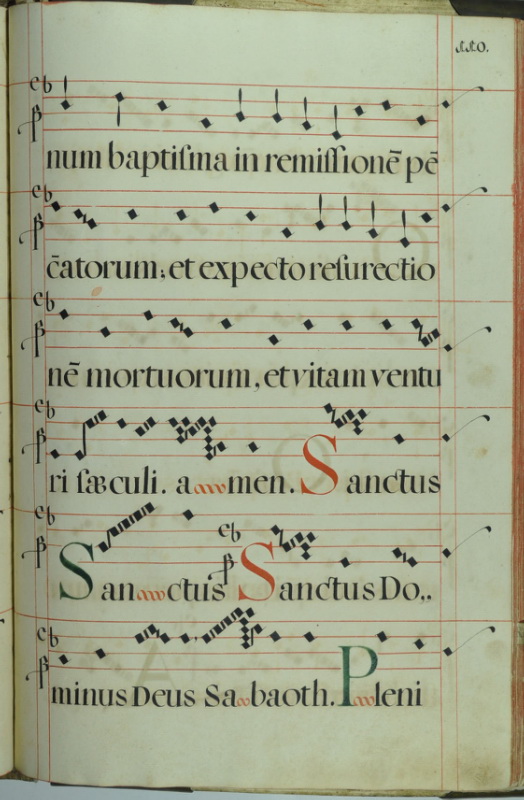 num baptiſma in remiſſionē pē
c̄atorum; et expecto reſurectio
nē mortuorum, et vitam ventu
ri ſæculi. a men. Sanctus
San ctus Sanctus Do..
minus Deus Sa baoth. Pleni